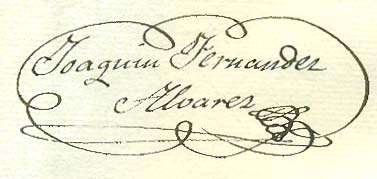 Joaquin Fernandez
Alvarez